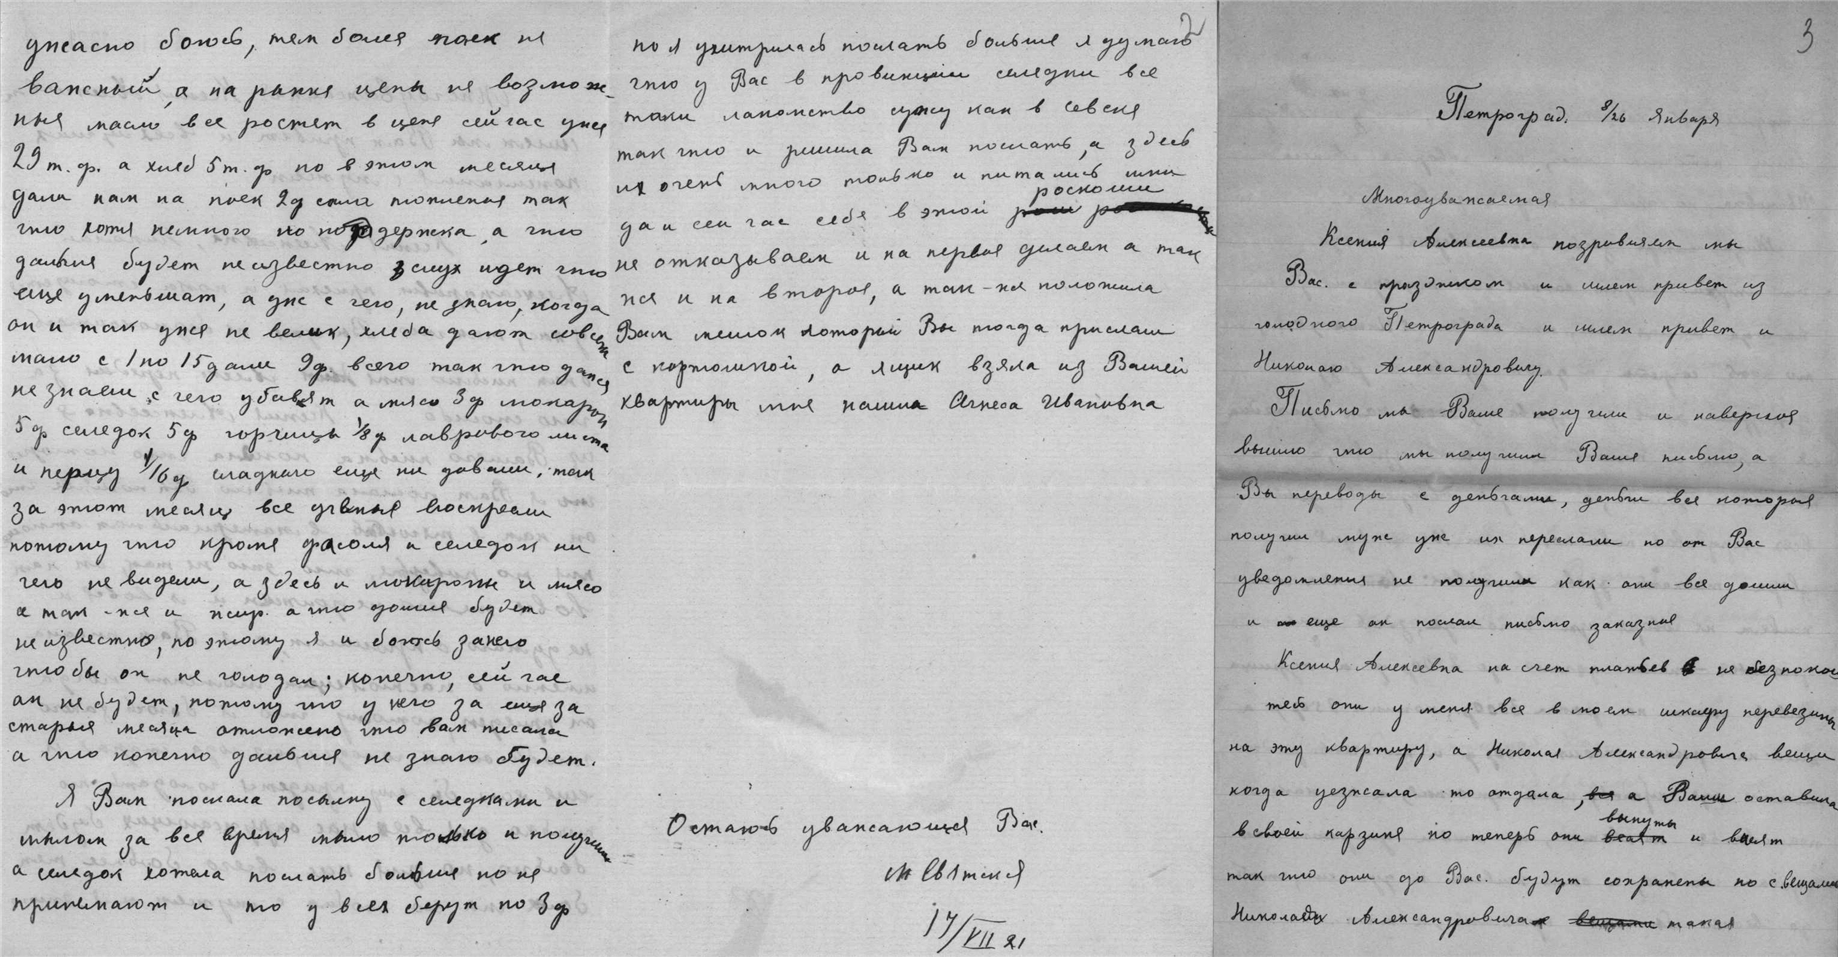 ужасно боюсь, тем более паек не
важный, а на рынке цены не возмож-
ныя масло все ростет в цене сейчас уже
29 т. ф. а хлеб 5 т. ф но в этом месяце
дали нам на паек 2ф сала топленая так
что хотя немного но поддержка, а что
дальше будет неизвестно слух идет что
еще уменьшат, а уже с чего, не знаю, когда
он и так уже не велик, хлеба дают совсем
мало с 1 по 15 дали 9ф. всего так что даже
не знаем с чего убавят а мясо 3ф макарон
5ф селедок 5ф горчицы 1/8 ф лаврового листа
и перцу 1/16 ф сладкаго еще ни давали, так
за этот месяц все ученыя воскресли
потому что кроме фасоля и селедок ни
чего не видели, а здесь и макароны и мясо
а так-же и жир. а что дальше будет
неизвестно, по этому я и боюсь за него
чтобы он не голодал; конечно, сейчас
он не будет, потому что у него за еще за
старыя месяца отложено что вам писала
а что конечно дальше не знаю будет.
Я Вам послала посылку с селедками и
мылом за все время мыло только и получили
а селедок хотела послать больше но не
принемают и то у всех берут по 3ф
2
но я ухитрилась послать больше я думаю
что у Вас в провинции селедки все
таки лакомство сужу как в Севске
так что и решила Вам послать, а здесь
их очень много только и питались ими
роскоши
да и сейчас себе в этой
не отказываем и на первое делаем а так
же и на второе, а так-же положила
Вам мешок который Вы тогда прислали
с картошкой, а ящик взяла из Вашей
квартиры мне нашла Агнеса Ивановна
Остаюсь уважающая Вас.
М Святская
17/VII 21
3
Петроград. 8/26 Января
Многоуважаемая
Ксения Алексеевна поздравляем мы
Вас. с праздником и шлем привет из
голодного Петрограда и шлем привет и
Николаю Александровичу.
Письмо мы Ваше получили и наверное
вышло что мы получили Ваше письмо, а
Вы переводы с деньгами, деньги все которыя
получил муж уже их переслали но от Вас
уведомления не получили как они все дошли
и еще он послал письмо заказное
Ксения Алексеевна на счет платьев не безпокой
тесь они у меня все в моем шкафу перевезины
на эту квартиру, а Николая Александровича вещи
когда уезжала то отдала, все а Ваши оставила
в своей карзине но теперь они висят вынуты и висят
так что они до Вас. будут сохранены но с вещами
Николая Александровича вещами такая